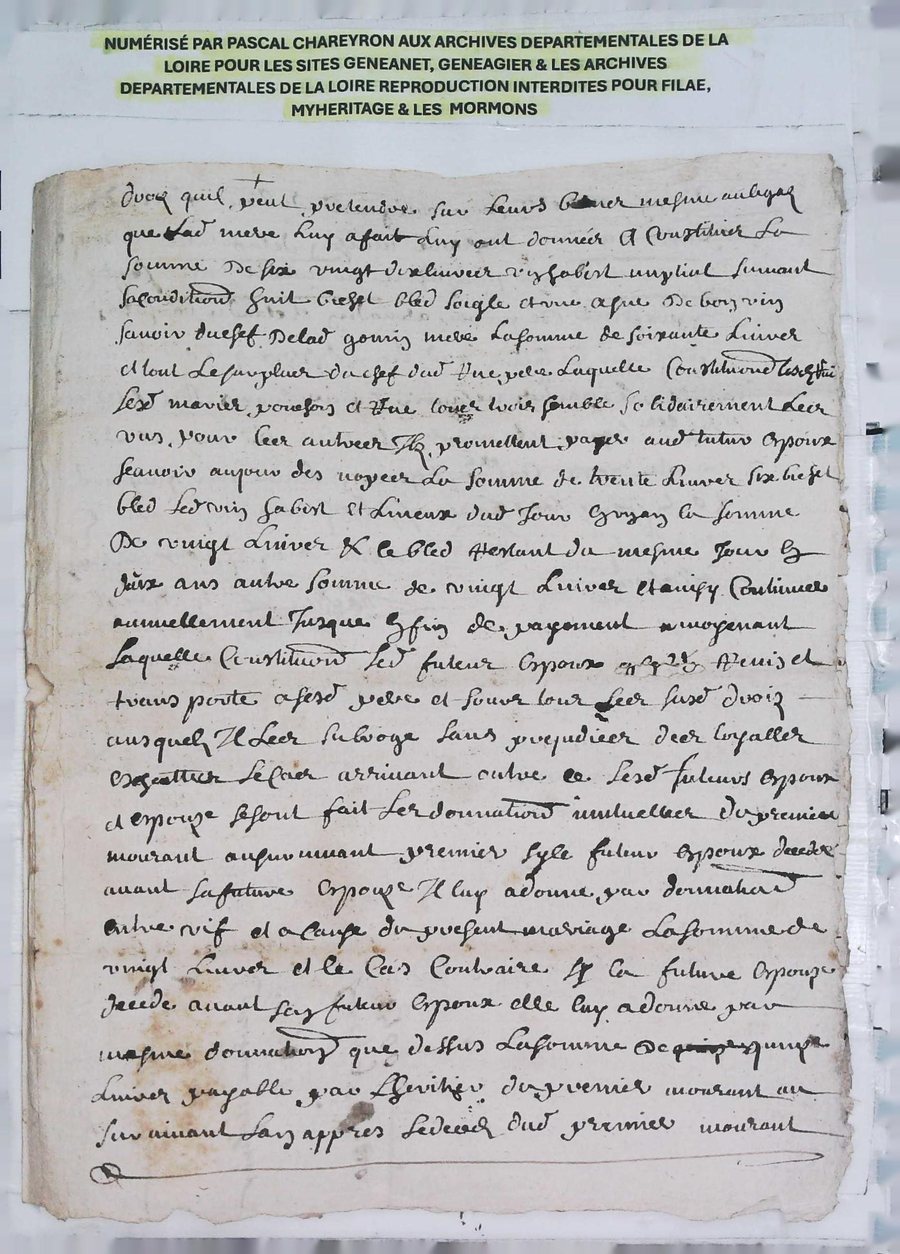 NUMÉRISÉ PAR PASCAL CHAREYRON AUX ARCHIVES DEPARTEMENTALES DE LA
LOIRE POUR LES SITES GENEANET, GENEAGIER & LES ARCHIVES
DEPARTEMENTALES DE LA LOIRE REPRODUCTION INTERDITES POUR FILAE,
MYHERITAGE & LES MORMONS
droiz quil peut pretendre sur leurs biens mesme au legaz
que lad mere luy a fait luy ont donnés et constitués la
somme de six vingt dix livres un habist nuptial suivant
sa condition huit bichet bled soigle et une asne de bon vin
savoir du chef de lad mere la somme de soixante livres
et tout le surplus du chef dud pere laquelle constitution
lesd mariés et tous trois semble solidairement les
uns pour les autres promettent payer aud futur espoux
scavoir au jour des la somme de trente livres six bichet
bled led vin habist et dud jour en la somme
de vingt livres & le bled restant du mesme jour en
deux ans autre somme de vingt livres et ainsy continuer
annuellement jusque en fin de payement moyenant
laquelle constitution led futeur espoux remis et
transporte a sesd pere et tous les susd droiz
ausquelz il les subroge sans prejudices des loyalles
le cas arrivant outre ce lesd futeurs espoux
et espouze se sont fait les donnations mutuelles du premier
mourant au survivant premier sy le futeur espoux decede
avant sa future espouze il luy a donne par donnation
entre vif et a cause du present mariage la somme de
vingt livres et le cas contraire sy la future espouze
decede avant son futeur espoux elle luy a donne par
mesme donnation que dessus la somme de quinze
livres payable par lheritier du premier mourant au
survivant lan appres le decedz dud premier mourant